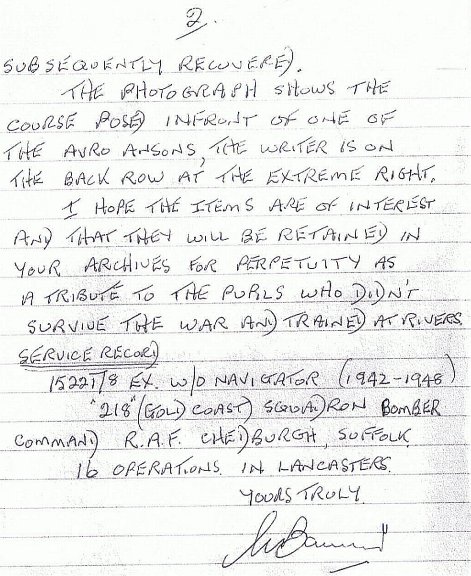 2.
SUBSEQUENTLY RECOVERED.
THE PHOTOGRAPH SHOWS THE
COURSE POSED INFRONT OF ONE OF
THE AVRO ANSONS, THE WRITER IS ON
THE BACK ROW AT THE EXTREME RIGHT.
I HOPE THE ITEMS ARE OF INTEREST
AND THAT THEY WILL BE RETAINED IN
YOUR ARCHIVES FOR PERPETUITY AS
A TRIBUTE TO THE PUPILS WHO DIDN'T
SURVIVE THE WAR AND TRAINED AT RIVERS.
SERVICE RECORD
EX. W/O NAVIGATOR (1942-1948)
"218" (GOLD COAST) SQUADRON BOMBER
COMMAND R.A.F. CHEDBURGH, SUFFOLK.
16 OPERATIONS IN LANCASTERS.
YOURS TRULY.